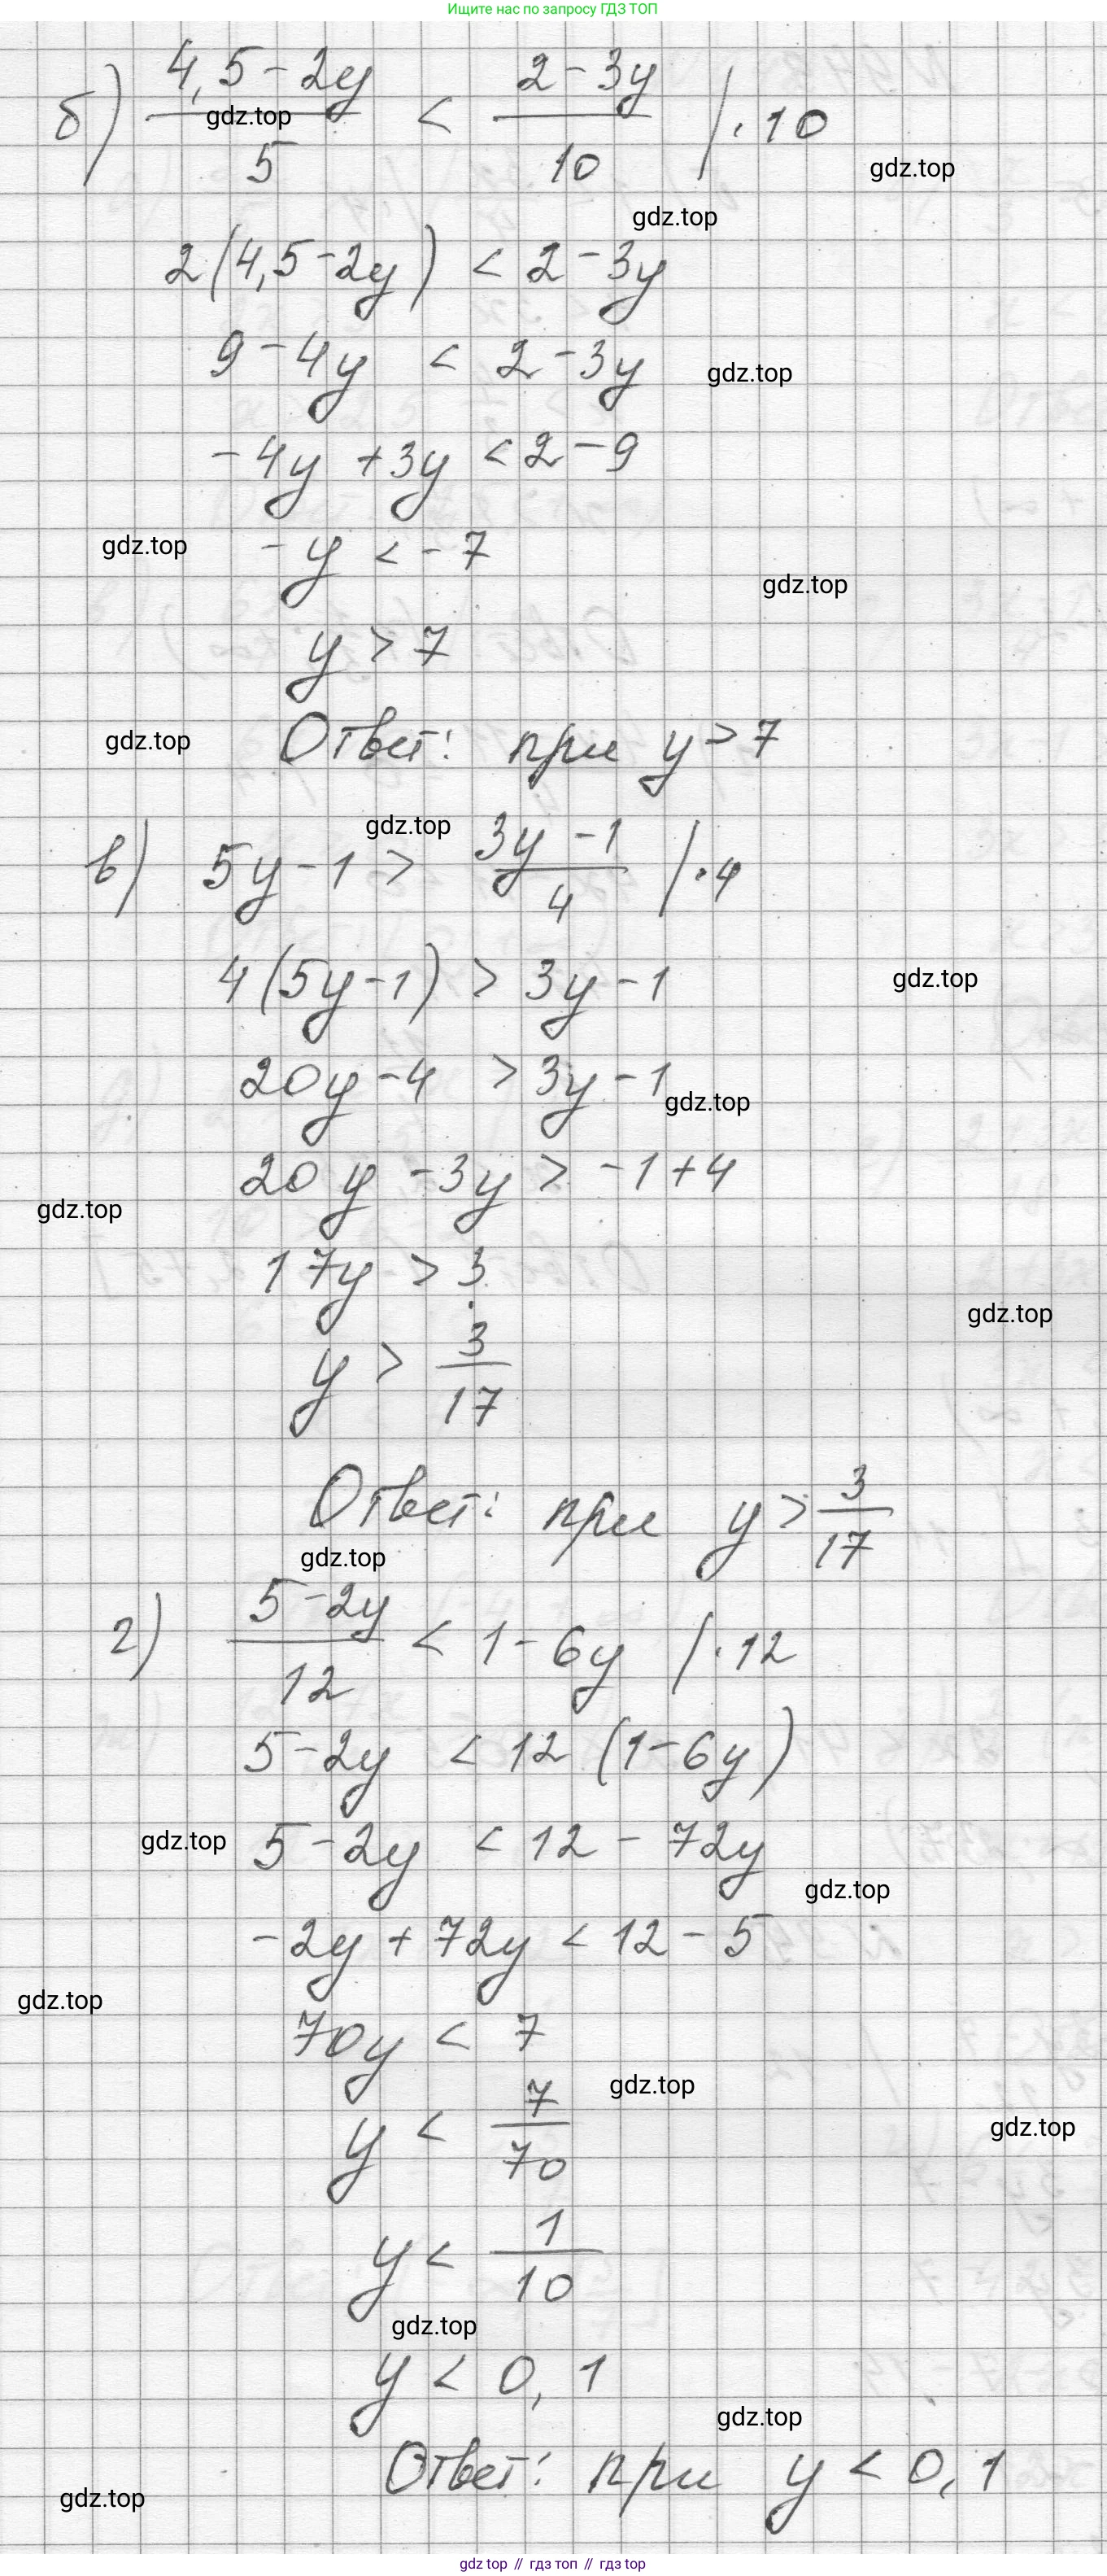 Ищите нас по запросу ГДЗ ТОП
б) (4,5-2y)/5 < (2-3y)/10 |·10
gdz.top
gdz.top
gdz.top
2(4,5-2y) < 2-3y
9-4y < 2-3y
gdz.top
-4y+3y<2-9
gdz.top
-y<-7
gdz.top
y>7
gdz.top
Ответ: при y>7
gdz.top
в) 5y-1 > (3y-1)/4 |·4
4(5y-1) > 3y-1
gdz.top
20y-4 > 3y-1
gdz.top
20y-3y > -1+4
gdz.top
17y > 3
gdz.top
y > 3/17
Ответ: при y > 3/17
gdz.top
г) (5-2y)/12 < 1-6y |·12
5-2y < 12(1-6y)
gdz.top
5-2y < 12-72y
gdz.top
-2y+72y < 12-5
gdz.top
70y < 7
gdz.top
y < 7/70
gdz.top
y < 1/10
gdz.top
y < 0,1
gdz.top
Ответ: при y < 0,1
gdz.top
gdz top // гдз топ // gdz top